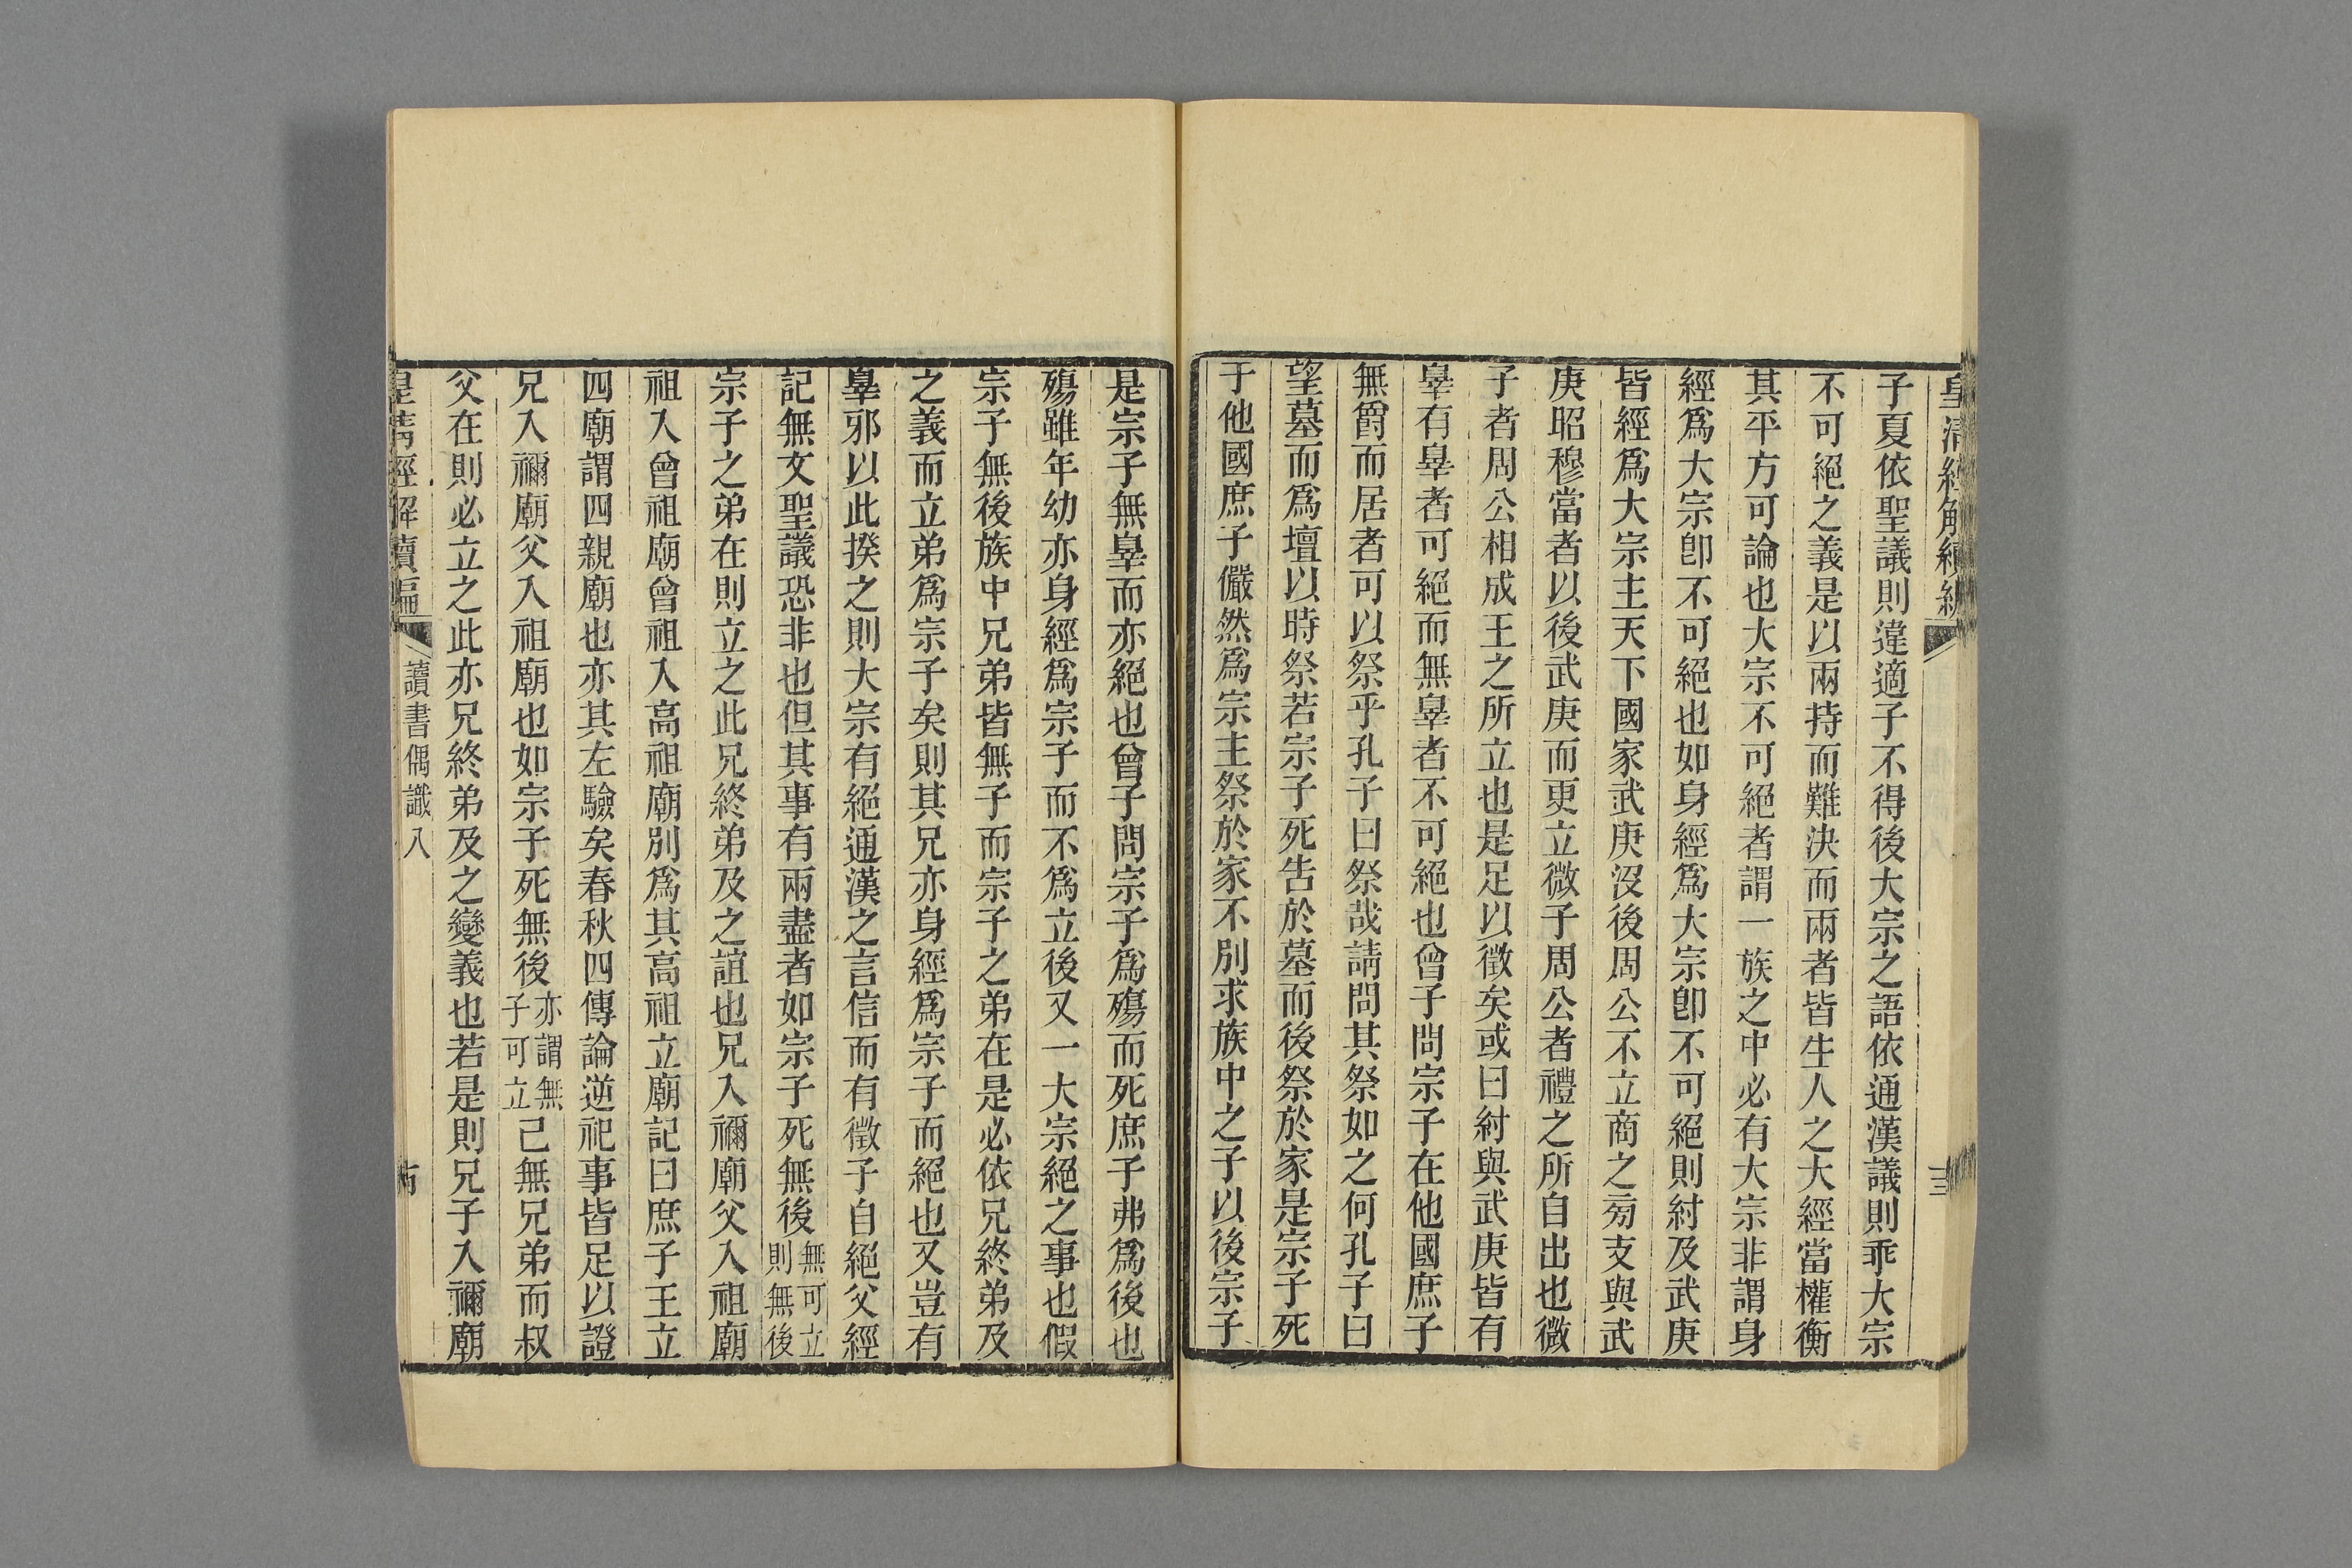 皇清經解續編
三
子夏依聖議則違適子不得後大宗之語依通漢議則乖大宗
不可絕之義是以兩持而難決而兩者皆生人之大經當權衡
其平方可論也大宗不可絕者謂一族之中必有大宗非謂身
經爲大宗卽不可絕也如身經爲大宗卽不可絕則紂及武庚
皆經爲大宗主天下國家武庚沒後周公不立商之旁支與武
庚昭穆當者以後武庚而更立微子周公者禮之所自出也微
子者周公相成王之所立也是足以徵矣或曰紂與武庚皆有
辠有辠者可絕而無辠者不可絕也曾子問宗子在他國庶子
無爵而居者可以祭乎孔子曰祭哉請問其祭如之何孔子曰
望墓而爲壇以時祭若宗子死告於墓而後祭於家是宗子死
于他國庶子儼然爲宗主祭於家不別求族中之子以後宗子
是宗子無辠而亦絕也曾子問宗子爲殤而死庶子弗爲後也
殤雖年幼亦身經爲宗子而不爲立後又一大宗絕之事也假
宗子無後族中兄弟皆無子而宗子之弟在是必依兄終弟及
之義而立弟爲宗子矣則其兄亦身經爲宗子而絕也又豈有
辠邪以此揆之則大宗有絕通漢之言信而有徵子自絕父經
記無文聖議恐非也但其事有兩盡者如宗子死無後無可立則無後
宗子之弟在則立之此兄終弟及之誼也兄入禰廟父入祖廟
祖入曾祖廟曾祖入高祖廟別爲其高祖立廟記曰庶子王立
四廟謂四親廟也亦其左驗矣春秋四傳論逆祀事皆足以證
兄入禰廟父入祖廟也如宗子死無後亦謂無子可立己無兄弟而叔
父在則必立之此亦兄終弟及之變義也若是則兄子入禰廟
皇清經解續編
讀書偶識八